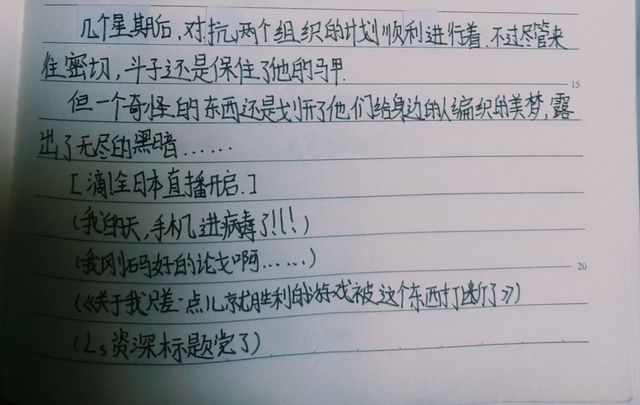 几个星期后,对抗两个组织的计划顺利进行着.不过尽管来
往密切,斗子还是保住了他的马甲.
但一个奇怪的东西还是划开了他们给身边的人编织的美梦,露
出了无尽的黑暗......
15
[滴!全日本直播开启.]
(我的天,手机进病毒了!!!)
(我刚码好的论文啊......)
20
(《关于我只差一点儿就胜利的游戏被这个东西打断了》)
(Ls资深标题党了)